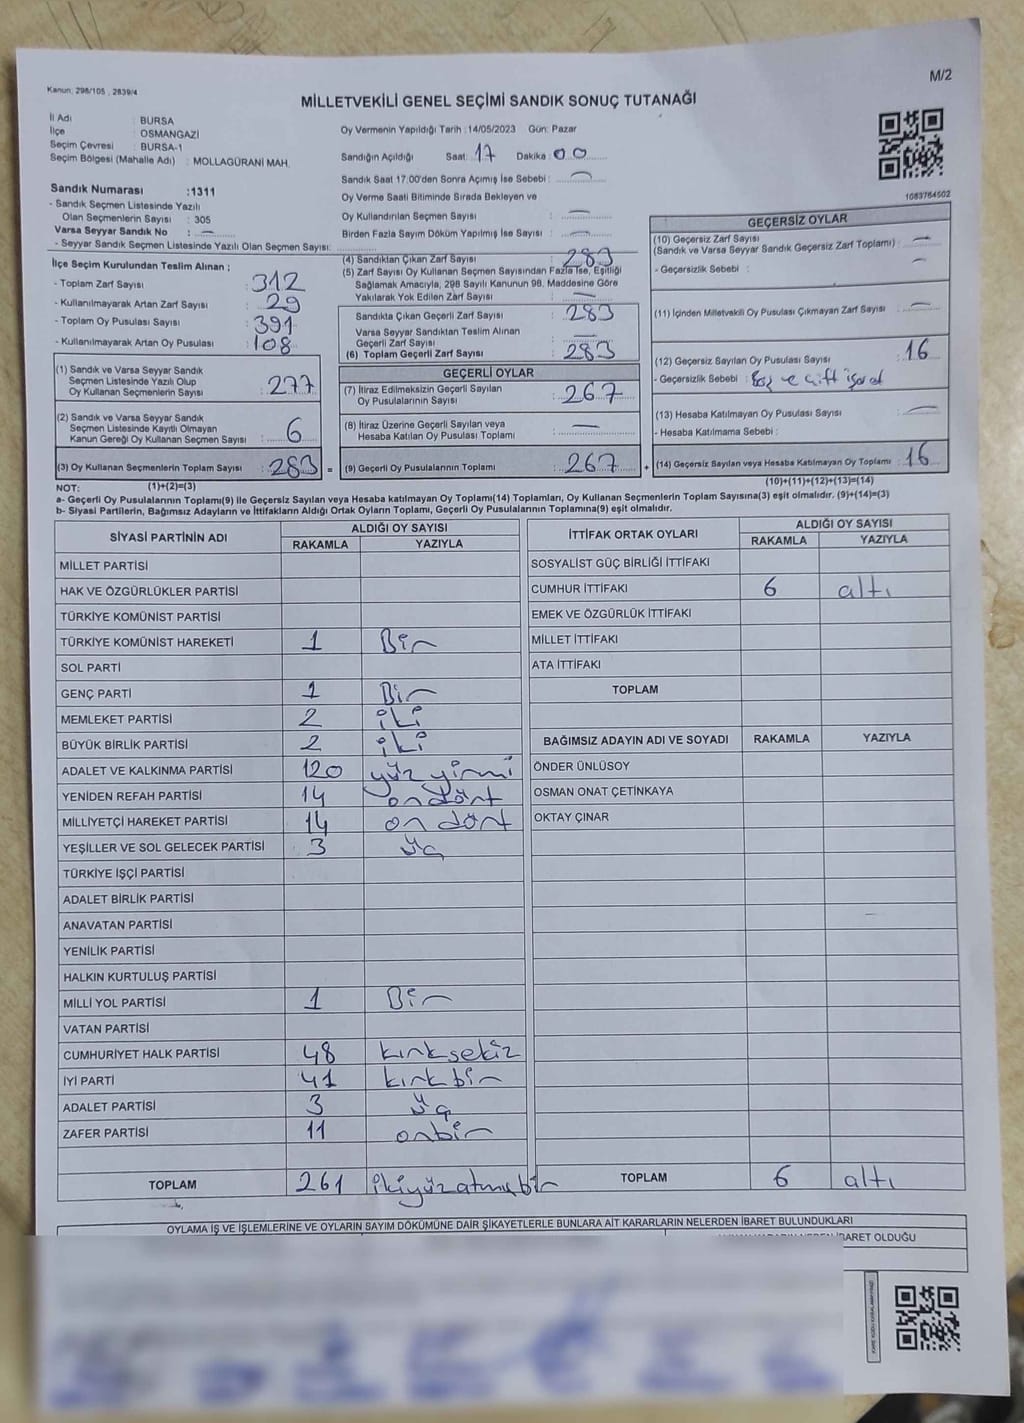 M/2
Kanun: 298/105 , 2839/4
MİLLETVEKİLİ GENEL SEÇİMİ SANDIK SONUÇ TUTANAĞI
İl Adı : BURSA
İlçe : OSMANGAZİ
Seçim Çevresi : BURSA-1
Seçim Bölgesi (Mahalle Adı) : MOLLAGÜRANİ MAH.
Sandık Numarası :1311
- Sandık Seçmen Listesinde Yazılı
Olan Seçmenlerin Sayısı : 305
Varsa Seyyar Sandık No : —
- Seyyar Sandık Seçmen Listesinde Yazılı Olan Seçmen Sayısı:
Oy Vermenin Yapıldığı Tarih :14/05/2023 Gün: Pazar
Sandığın Açıldığı Saat: 17 Dakika: 00
Sandık Saat 17.00'den Sonra Açımış İse Sebebi : —
Oy Verme Saati Bitiminde Sırada Bekleyen ve
Oy Kullandırılan Seçmen Sayısı : —
Birden Fazla Sayım Döküm Yapılmış İse Sayısı : —
1083764502
İlçe Seçim Kurulundan Teslim Alınan ;
- Toplam Zarf Sayısı : 312
- Kullanılmayarak Artan Zarf Sayısı : 29
- Toplam Oy Pusulası Sayısı : 391
- Kullanılmayarak Artan Oy Pusulası : 108
(1) Sandık ve Varsa Seyyar Sandık
Seçmen Listesinde Yazılı Olup
Oy Kullanan Seçmenlerin Sayısı : 277
(2) Sandık ve Varsa Seyyar Sandık
Seçmen Listesinde Kayıtlı Olmayan
Kanun Gereği Oy Kullanan Seçmen Sayısı : 6
(3) Oy Kullanan Seçmenlerin Toplam Sayısı : 283 =
(4) Sandıktan Çıkan Zarf Sayısı : 283
(5) Zarf Sayısı Oy Kullanan Seçmen Sayısından Fazla İse, Eşitliği
Sağlamak Amacıyla, 298 Sayılı Kanunun 98. Maddesine Göre
Yakılarak Yok Edilen Zarf Sayısı : —
Sandıkta Çıkan Geçerli Zarf Sayısı : 283
Varsa Seyyar Sandıktan Teslim Alınan
Geçerli Zarf Sayısı : —
(6) Toplam Geçerli Zarf Sayısı : 283
GEÇERLİ OYLAR
(7) İtiraz Edilmeksizin Geçerli Sayılan
Oy Pusulalarının Sayısı : 267
(8) İtiraz Üzerine Geçerli Sayılan veya
Hesaba Katılan Oy Pusulası Toplamı : —
(9) Geçerli Oy Pusulalarının Toplamı : 267 +
GEÇERSİZ OYLAR
(10) Geçersiz Zarf Sayısı
(Sandık ve Varsa Seyyar Sandık Geçersiz Zarf Toplamı) : —
- Geçersizlik Sebebi : —
(11) İçinden Milletvekili Oy Pusulası Çıkmayan Zarf Sayısı : —
(12) Geçersiz Sayılan Oy Pusulası Sayısı : 16
- Geçersizlik Sebebi : Boş ve çift işaret
(13) Hesaba Katılmayan Oy Pusulası Sayısı : —
- Hesaba Katılmama Sebebi :
(14) Geçersiz Sayılan veya Hesaba Katılmayan Oy Pusulası Toplamı : 16
NOT: (1)+(2)=(3)
(10)+(11)+(12)+(13)=(14)
a- Geçerli Oy Pusulalarının Toplamı(9) ile Geçersiz Sayılan veya Hesaba katılmayan Oy Toplamı(14) Toplamları, Oy Kullanan Seçmenlerin Toplam Sayısına(3) eşit olmalıdır. (9)+(14)=(3)
b- Siyasi Partilerin, Bağımsız Adayların ve İttifakların Aldığı Ortak Oyların Toplamı, Geçerli Oy Pusulalarının Toplamına(9) eşit olmalıdır.
SİYASİ PARTİNİN ADI ALDIĞI OY SAYISI
RAKAMLA YAZIYLA
MİLLET PARTİSİ
HAK VE ÖZGÜRLÜKLER PARTİSİ
TÜRKİYE KOMÜNİST PARTİSİ
TÜRKİYE KOMÜNİST HAREKETİ 1 Bir
SOL PARTİ
GENÇ PARTİ 1 Bir
MEMLEKET PARTİSİ 2 iki
BÜYÜK BİRLİK PARTİSİ 2 iki
ADALET VE KALKINMA PARTİSİ 120 yüz yirmi
YENİDEN REFAH PARTİSİ 14 on dört
MİLLİYETÇİ HAREKET PARTİSİ 14 on dört
YEŞİLLER VE SOL GELECEK PARTİSİ 3 üç
TÜRKİYE İŞÇİ PARTİSİ
ADALET BİRLİK PARTİSİ
ANAVATAN PARTİSİ
YENİLİK PARTİSİ
HALKIN KURTULUŞ PARTİSİ
MİLLİ YOL PARTİSİ 1 Bir
VATAN PARTİSİ
CUMHURİYET HALK PARTİSİ 48 kırksekiz
İYİ PARTİ 41 kırkbir
ADALET PARTİSİ 3 üç
ZAFER PARTİSİ 11 onbir
TOPLAM 261 ikiyüzatmışbir
İTTİFAK ORTAK OYLARI ALDIĞI OY SAYISI
RAKAMLA YAZIYLA
SOSYALİST GÜÇ BİRLİĞİ İTTİFAKI
CUMHUR İTTİFAKI 6 altı
EMEK VE ÖZGÜRLÜK İTTİFAKI
MİLLET İTTİFAKI
ATA İTTİFAKI
TOPLAM
BAĞIMSIZ ADAYIN ADI VE SOYADI RAKAMLA YAZIYLA
ÖNDER ÜNLÜSOY
OSMAN ONAT ÇETİNKAYA
OKTAY ÇINAR
TOPLAM 6 altı
OYLAMA İŞ VE İŞLEMLERİNE VE OYLARIN SAYIM DÖKÜMÜNE DAİR ŞİKAYETLERLE BUNLARA AİT KARARLARIN NELERDEN İBARET BULUNDUKLARI
İBARET OLDUĞU